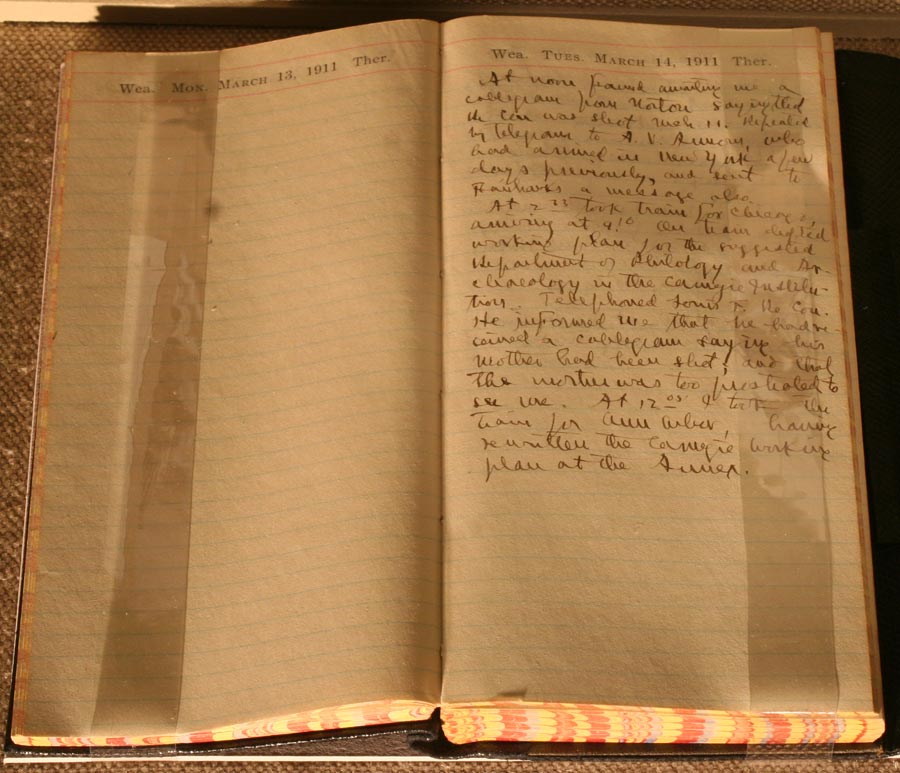 Wea. Mon. March 13, 1911 Ther.
Wea. Tues. March 14, 1911 Ther.
At noon found awaiting me a
cablegram from Norton saying that
De Cou was shot Mch 11. Repeated
by telegram to A. V. Armour, who
had arrived in New York a few
days previously, and sent to
Fairbanks a message also.
At 2 took train for Chicago,
arriving at 9. On train drafted
working plan for the suggested
Department of Philology and Ar-
chaeology in the Carnegie Institu-
tion. Telephoned De Cou.
He informed me that he had re-
ceived a cablegram saying his
brother had been shot, and that
the mother was too prostrated to
see me. At 12 05 I took the
train for Ann Arbor, having
rewritten the Carnegie working
plan at the Annex.